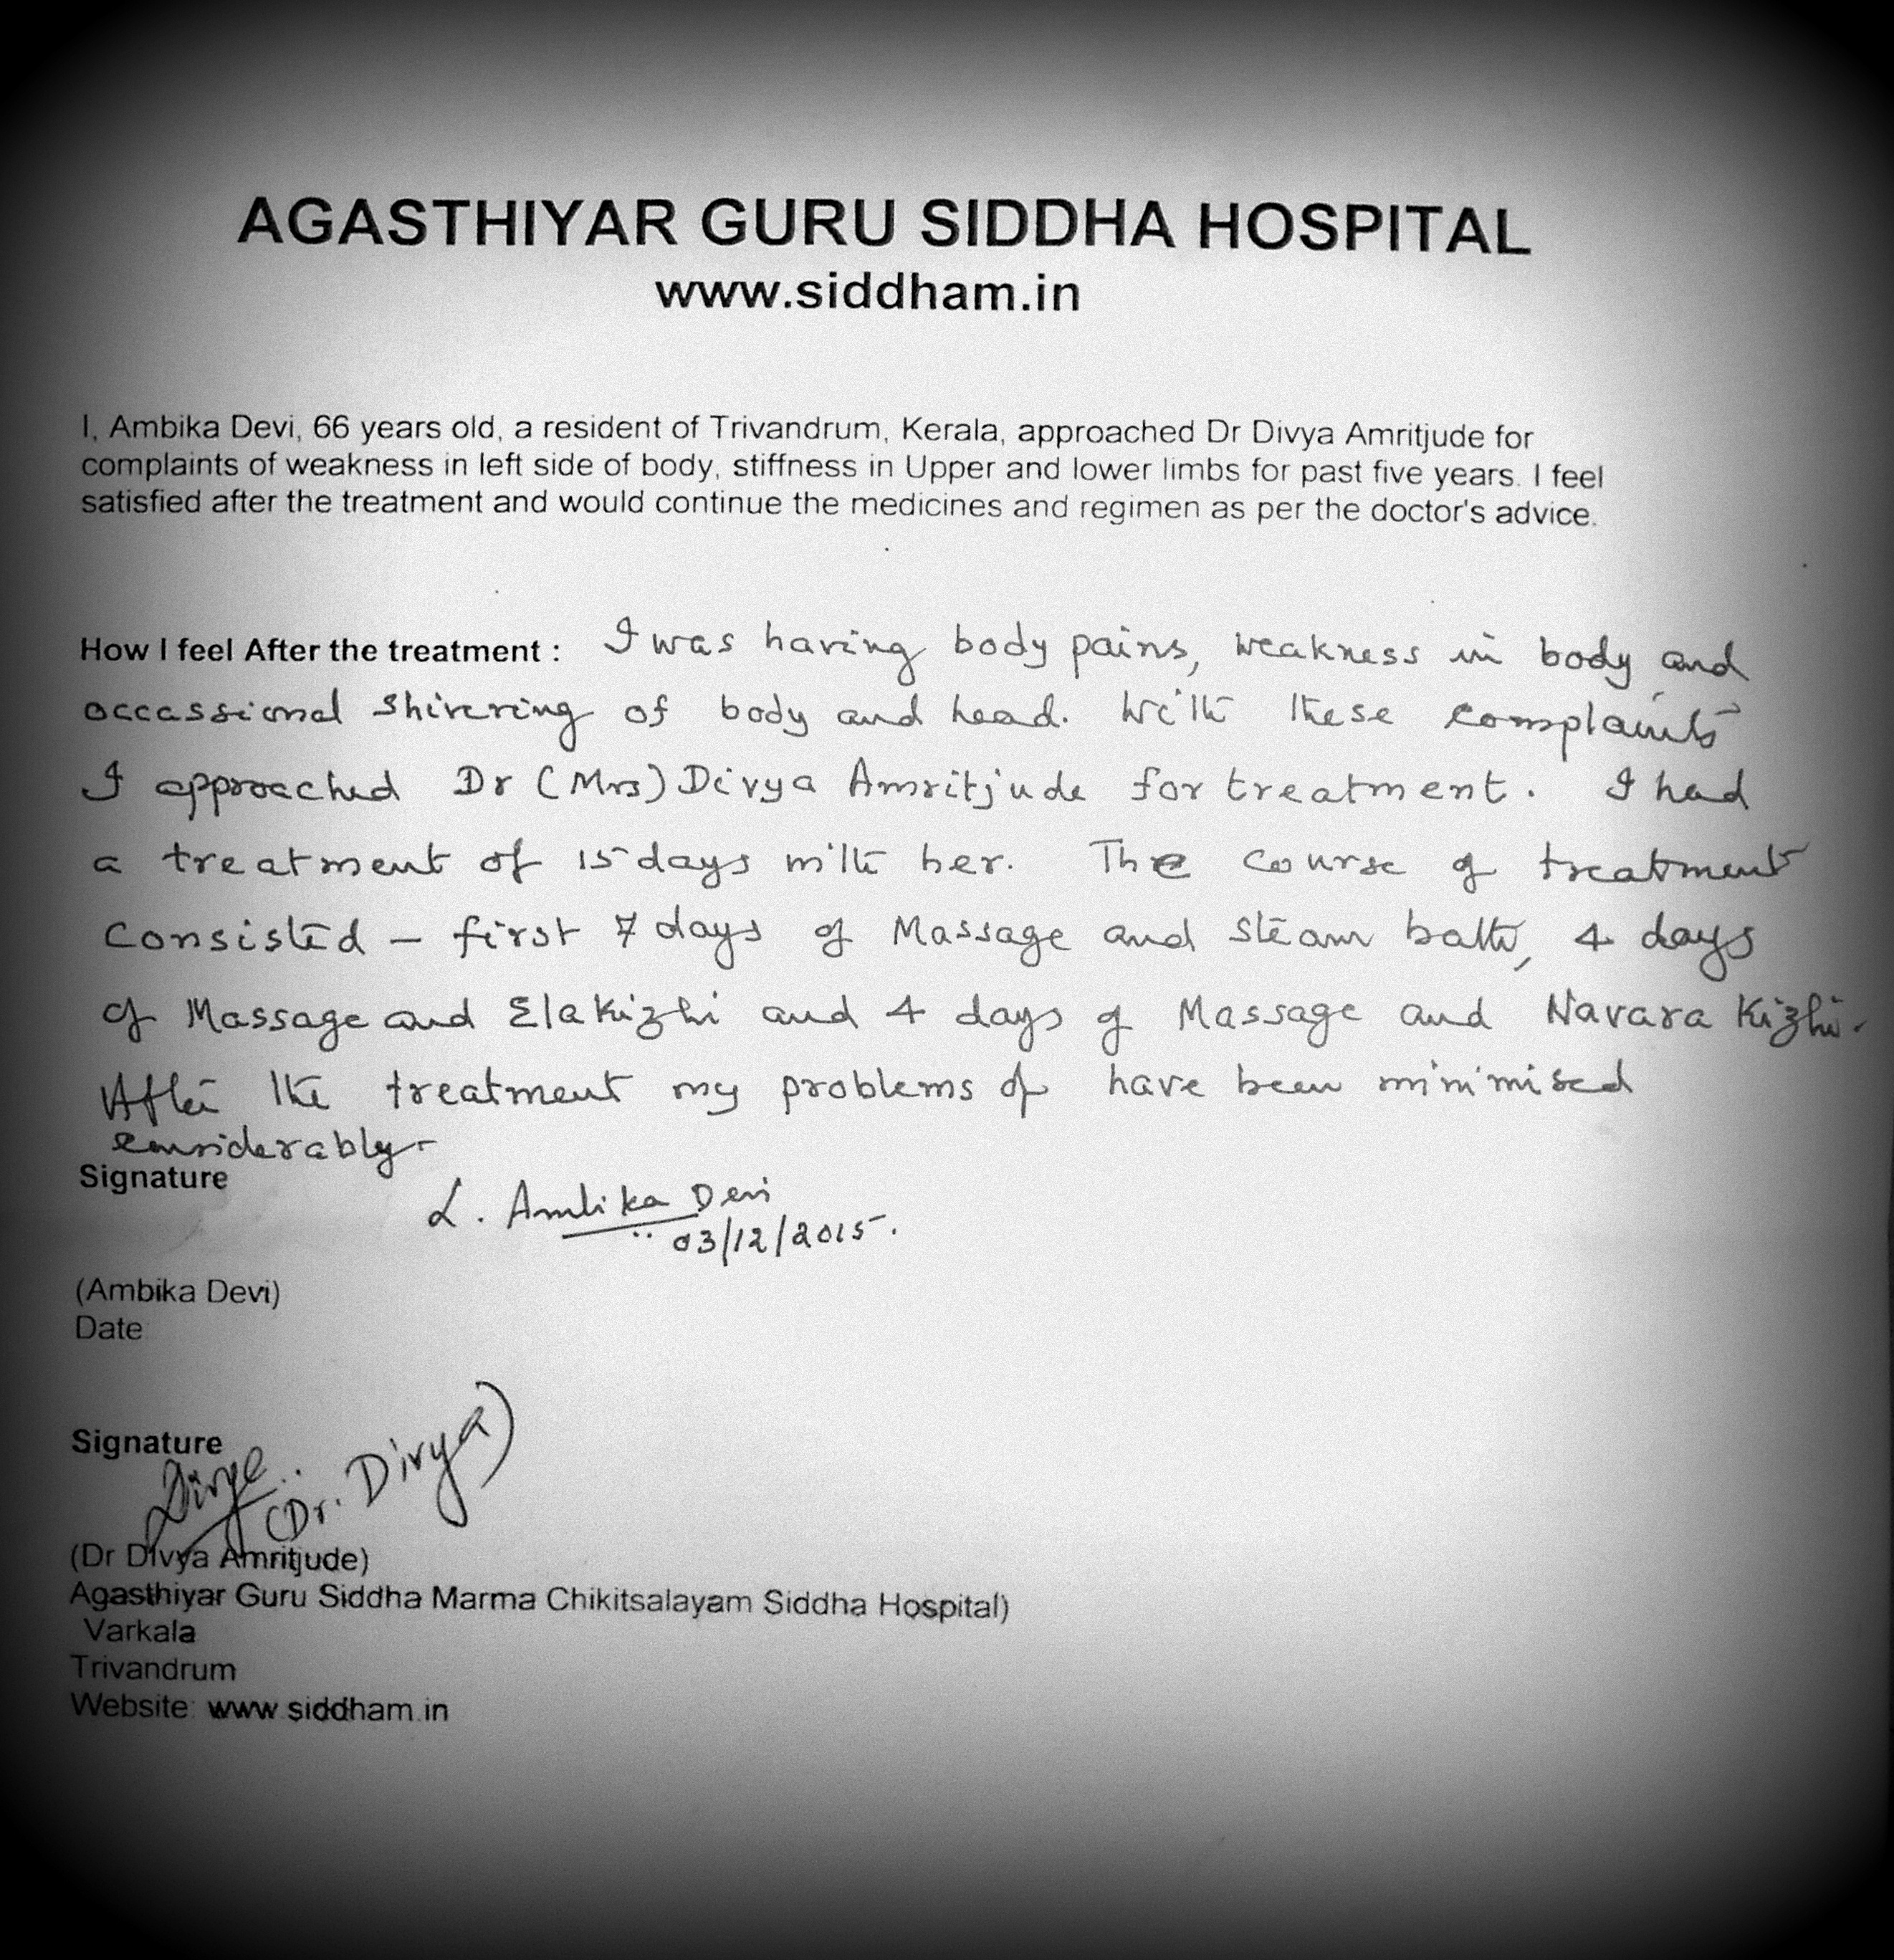 AGASTHIYAR GURU SIDDHA HOSPITAL
www.siddham.in
I, Ambika Devi, 66 years old, a resident of Trivandrum, Kerala, approached Dr Divya Amritjude for
complaints of weakness in left side of body, stiffness in Upper and lower limbs for past five years. I feel
satisfied after the treatment and would continue the medicines and regimen as per the doctor's advice.
How I feel After the treatment : I was having body pains, weakness in body and
occassional shivering of body and head. With these complaints
I approached Dr (Mrs) Divya Amritjude for treatment. I had
a treatment of 15 days with her. The course of treatment
consisted – first 7 days of Massage and steam bath, 4 days
of Massage and Elakizhi and 4 days of Massage and Navara Kizhi.
After the treatment my problems of have been minimised
considerably.
Signature
L. Ambika Devi
03/12/2015.
(Ambika Devi)
Date
Signature
Divya
(Dr. Divya)
(Dr Divya Amritjude)
Agasthiyar Guru Siddha Marma Chikitsalayam Siddha Hospital)
Varkala
Trivandrum
Website: www.siddham.in